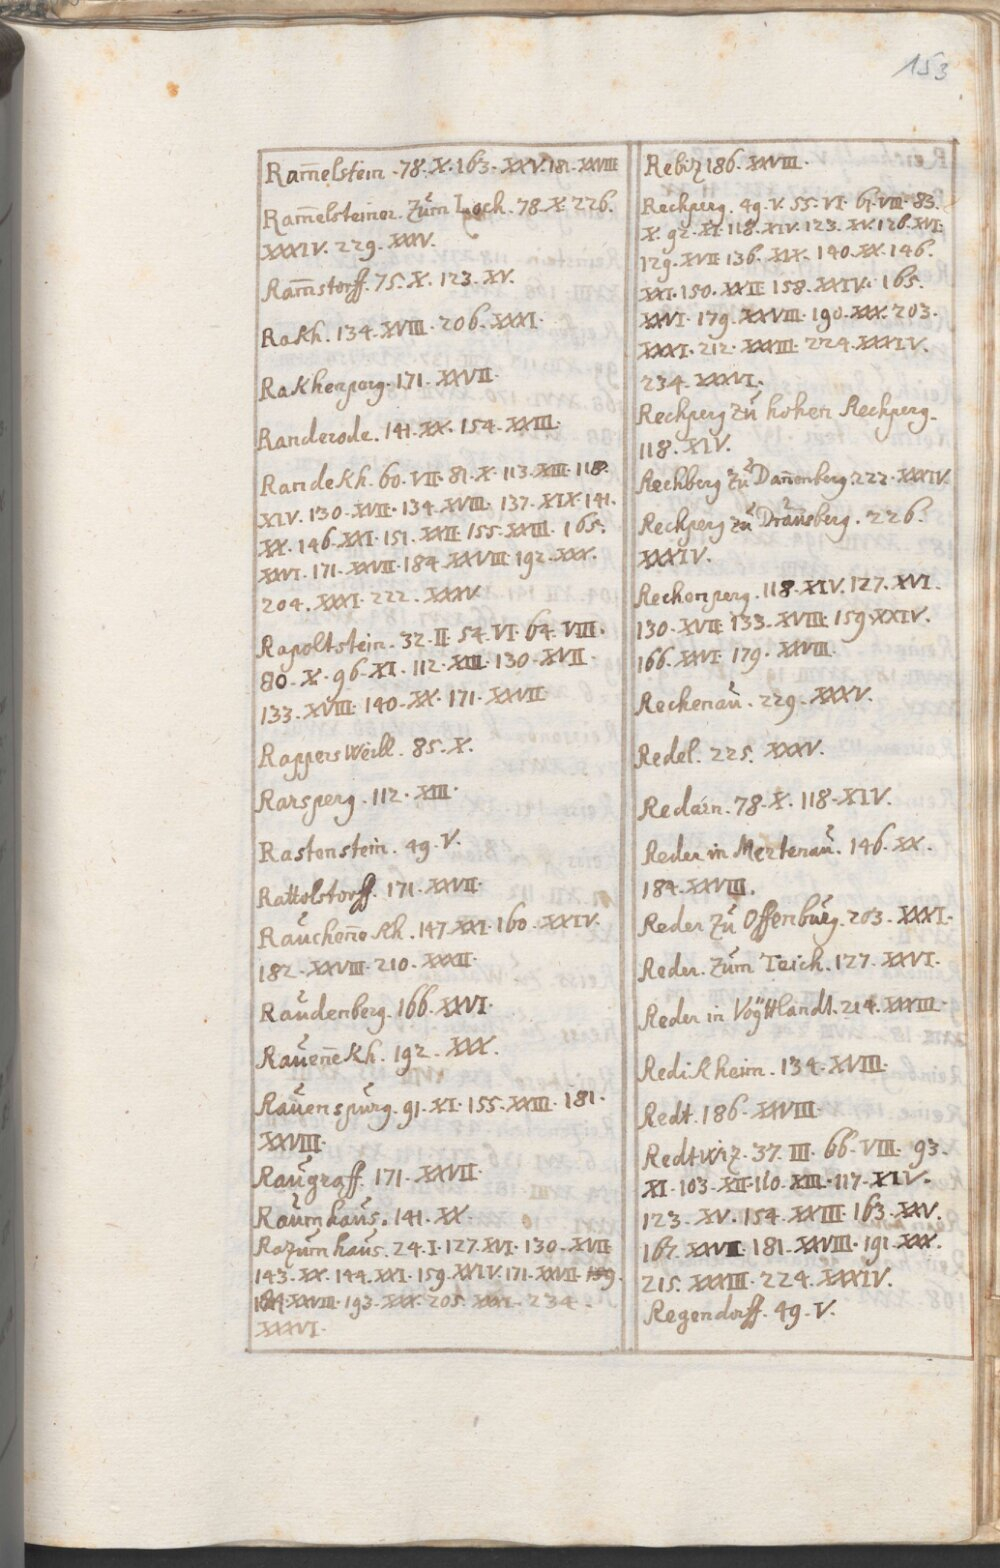 153
Ram̄elstein. 78. X. 163. XXV. 181. XXVIII
Ram̄elsteiner. Zŭm Loch. 78. X. 226.
XXXIV. 229. XXXV.
Ram̄storff. 75. X. 123. XV.
Rakh. 134. XVIII. 206. XXXI.
Rakhenperg. 171. XXVII.
Randerode. 141. XX. 154. XXIII.
Randekh. 60. VII. 81. X. 113. XIII. 118.
XIV. 130. XVII. 134. XVIII. 137. XIX. 141.
XX. 146. XXI. 151. XXII. 155. XXIII. 165.
XXVI. 171. XXVII. 184. XXVIII. 192. XXX.
204. XXXI. 222. XXXIV.
Rapoltstein. 32. II. 54. VI. 64. VIII.
80. X. 96. XI. 112. XIII. 130. XVII.
133. XVIII. 140. XX. 171. XXVII
Rappersweil. 85. X.
Rarsperg. 112. XIII.
Rastenstein. 49. V.
Rattolstorff. 171. XXVII.
Raŭchen̄ekh. 147. XXI. 160. XXIV.
182. XXVIII. 210. XXXII.
Raŭdenberg. 166. XXVI.
Raŭen̄ekh. 192. XXX.
Raŭenspŭrg. 91. XI. 155. XXIII. 181.
XXVIII.
Raŭgraff. 171. XXVII.
Raŭmhaŭs. 141. XX.
Razŭmhaŭs. 24. I. 127. XVI. 130. XVII
143. XX. 144. XXI. 159. XXIV. 171. XXVII.
XXVIII. 193. XXX. 205. XXXI. 234.
XXXVI.
Rebiz 186. XXVIII.
Rechperg. 49. V. 55. VI. 67. VIII. 83.
X. 92. XI. 118. XIV. 123. XV. 126. XVI.
129. XVII. 136. XIX. 140. XX. 146.
XXI. 150. XXII. 158. XXIV. 165.
XXVI. 179. XXVIII. 190. XXX. 203.
XXXI. 212. XXXIII. 224. XXXIV.
234. XXXVI.
Rechperg zŭ hohen Rechperg.
118. XIV.
Rechberg zŭ Dan̄enberg. 222. XXXIV
Rechperg zŭ Draŭsberg. 226.
XXXIV.
Rechenperg. 118. XIV. 127. XVI.
130. XVII. 133. XVIII. 159. XXIV.
166. XXVI. 179. XXVIII.
Rechenaŭ. 229. XXXV.
Redel. 225. XXXV.
Redern. 78. X. 118. XIV.
Reder in Mertenaŭ. 146. XX.
184. XXVIII.
Reder zŭ Offenbŭrg. 203. XXXI.
Reder. Zŭm Teich. 127. XXVI.
Reder in Voÿttlandt. 214. XXXIII.
Redikheim. 134. XVIII.
Redt. 186. XXVIII.
Redtwiz. 37. III. 66. VIII. 93.
XI. 103. XII. 110. XIII. 117. XIV.
123. XV. 154. XXIII. 163. XXV.
167. XXVII. 181. XXVIII. 191. XXX.
215. XXXIII. 224. XXXIV.
Regendorff. 49. V.